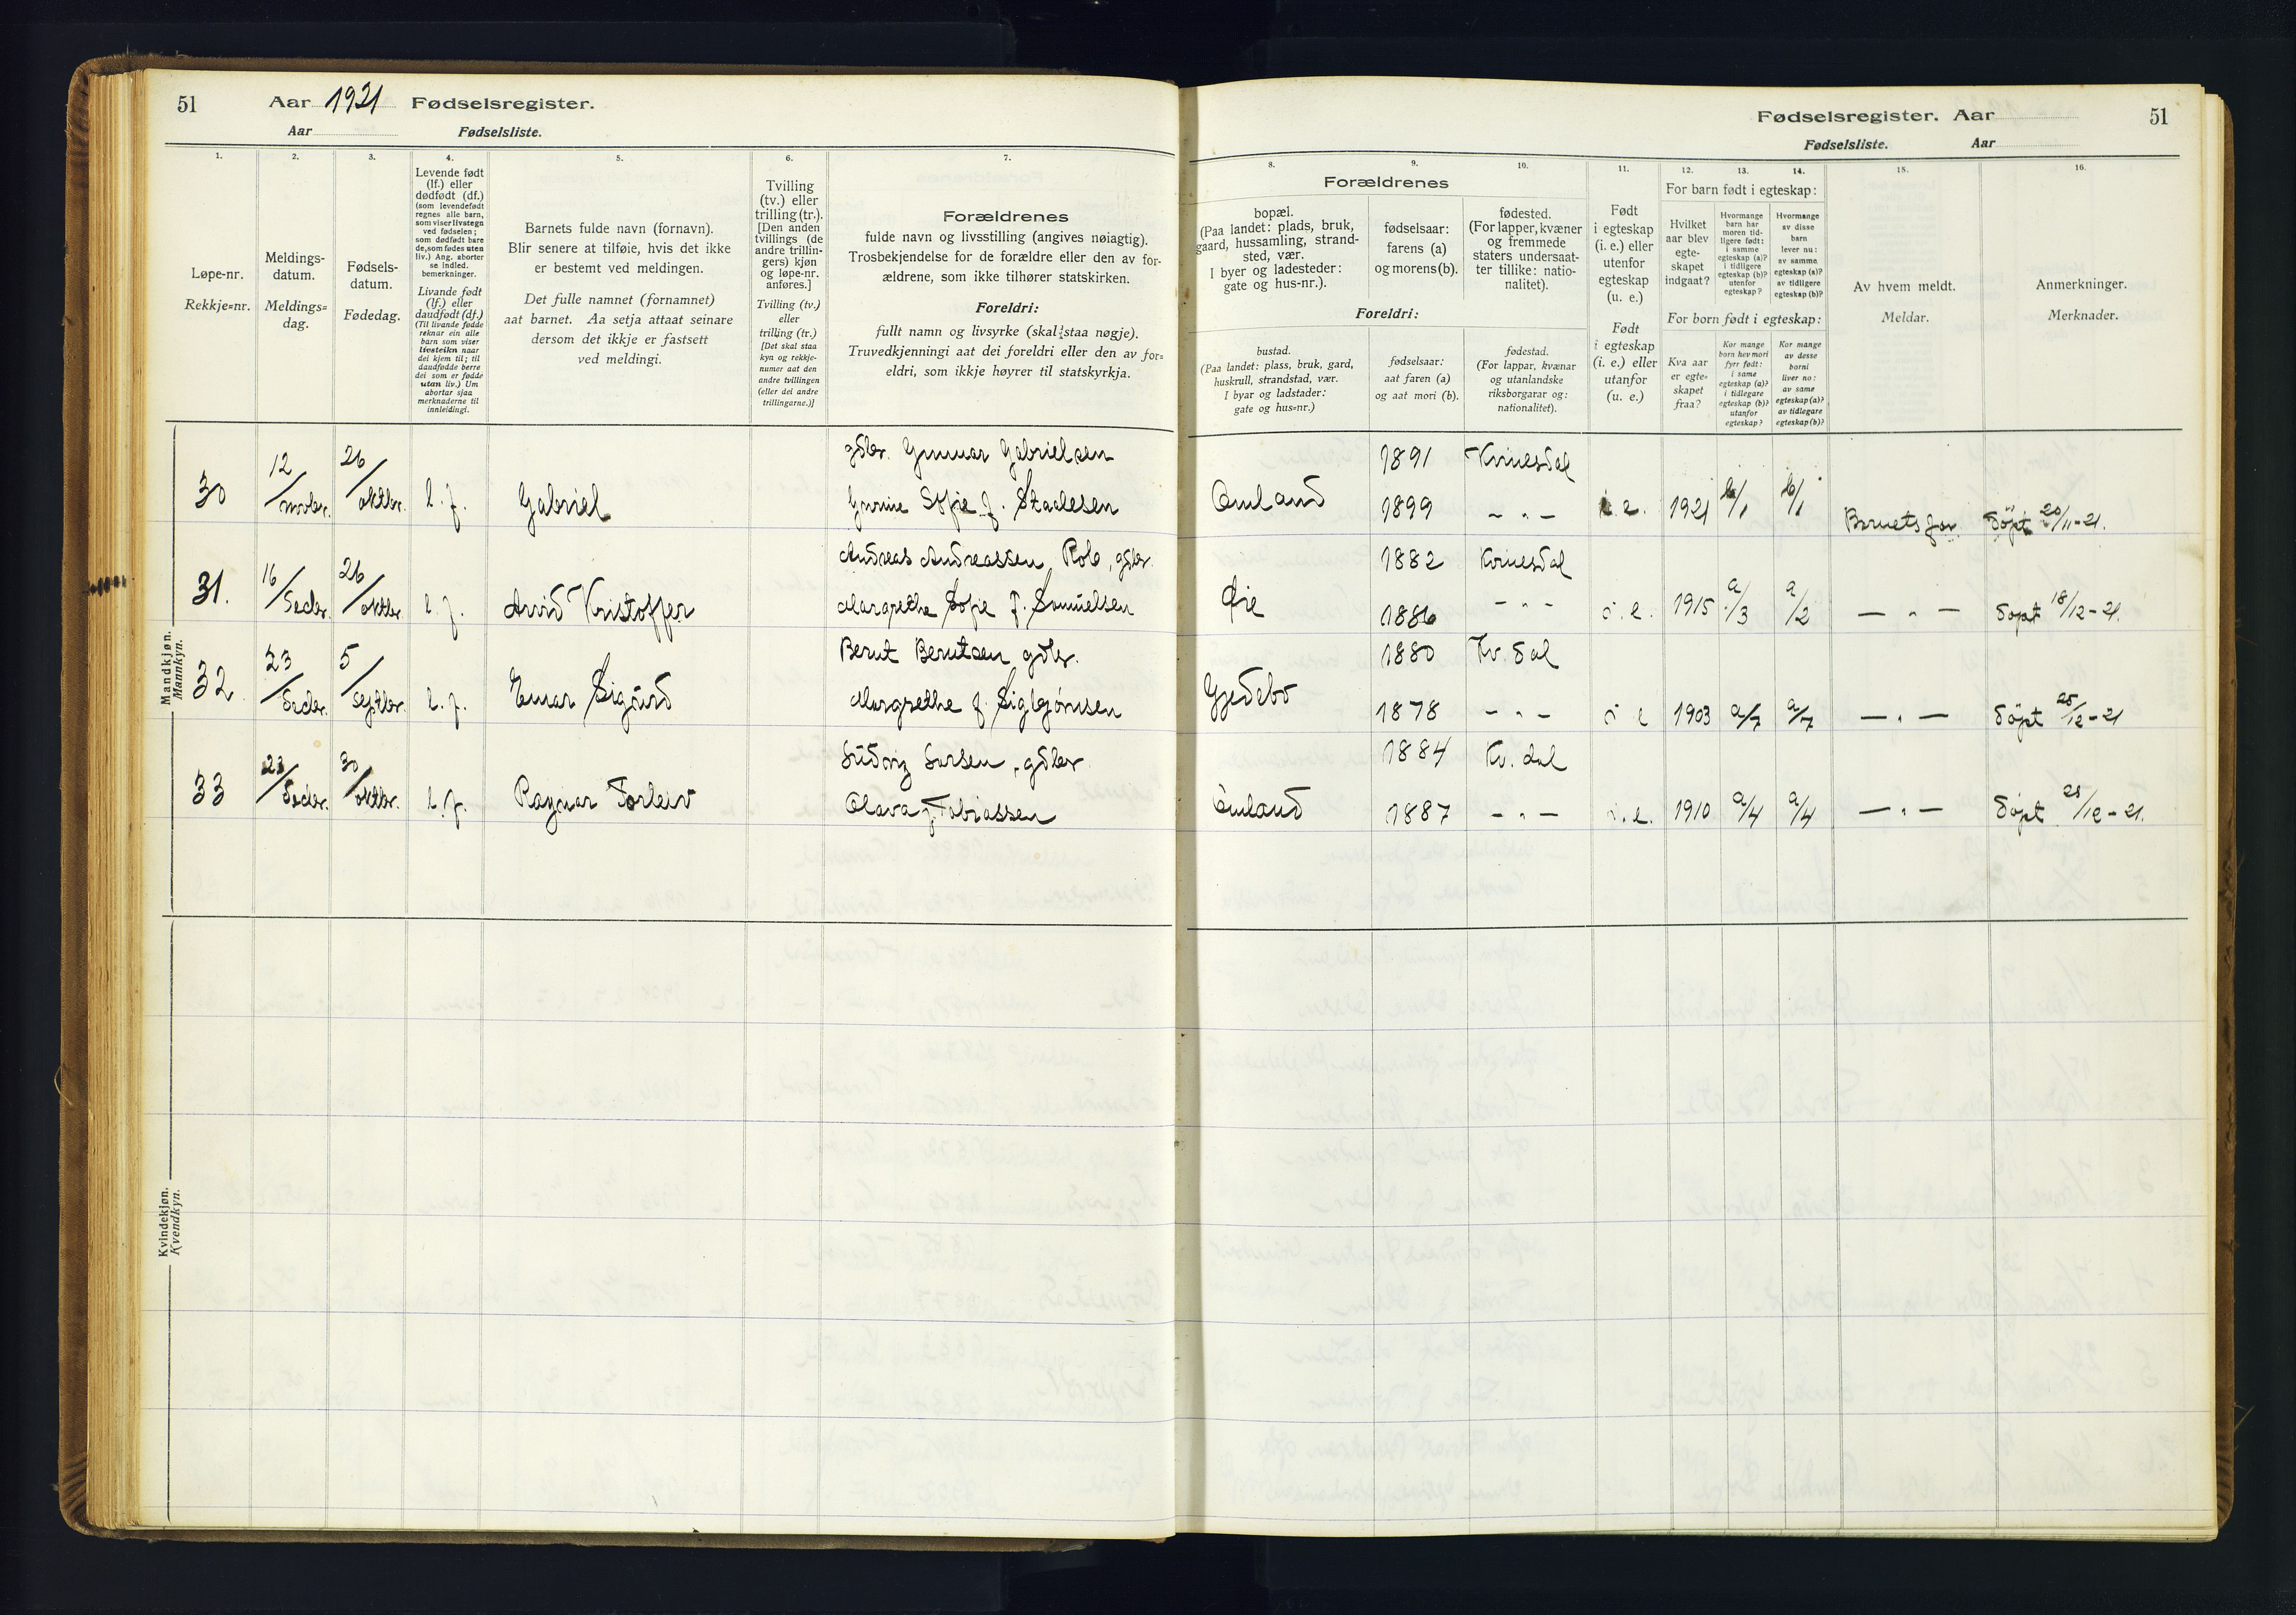 51 Aar 1921 Fødselsregister.
Aar Fødselsliste.
Fødselsregister. Aar 51
Fødselsliste. Aar
1.
Løpe-nr.
Rekkje=nr.
2.
Meldings-
datum.
Meldings=
dag.
3.
Fødsels-
datum.
Fødedag.
4.
Levende født
(lf.) eller
dødfødt (df.)
(som levendefødt
regnes alle barn,
som viser livstegn
ved fødselen;
som dødfødt bare
de, som fødes uten
liv.) Ang. aborter
se indled.
bemerkninger.
Livande født
(lf.) eller
daudfødt (df.)
(Til livande fødde
reknar ein alle
barn som viser
livsteikn naar
dei kjem til; til
daudfødde berre
dei som er fødde
utan liv.) Um
abortar sjaa
merknaderne til
innleidingi.
5.
Barnets fulde navn (fornavn).
Blir senere at tilføie, hvis det ikke
er bestemt ved meldingen.
Det fulle namnet (fornamnet)
aat barnet. Aa setja attaat seinare
dersom det ikkje er fastsett
ved meldingi.
6.
Tvilling
(tv.) eller
trilling (tr.).
[Den anden
tvillings (de
andre trillin-
gers) kjøn
og løpe-nr.
anføres.]
Tvilling (tv.)
eller
trilling (tr.)
[Det skal staa
kyn og rekkje-
numer aat den
andre tvillingen
(eller dei andre
trillingarne.)]
7.
Forældrenes
fulde navn og livsstilling (angives nøiagtig).
Trosbekjendelse for de forældre eller den av for-
ældrene, som ikke tilhører statskirken.
Foreldri:
fullt namn og livsyrke (skal staa nøgje).
Truvedkjenningi aat dei foreldri eller den av for=
eldri, som ikkje høyrer til statskyrkja.
Forældrenes
8.
bopæl.
(Paa landet: plads, bruk,
gaard, hussamling, strand-
sted, vær.
I byer og ladesteder:
gate og hus-nr.).
9.
fødselsaar:
farens (a)
og morens (b).
10.
fødested.
(For lapper, kvæner
og fremmede
staters undersaat-
ter tillike: natio-
nalitet).
Foreldri:
bustad.
(Paa landet: plass, bruk, gard,
huskrull, strandstad, vær.
I byar og ladstader:
gate og hus=nr.)
fødselsaar:
aat faren (a)
og aat mori (b).
fødestad.
(For lappar, kvænar
og utanlandske
riksborgarar og:
nationalitet).
11.
Født
i egteskap
(i. e.) eller
utenfor
egteskap
(u. e.)
Født
i egteskap
(i. e.) eller
utanfor
(u. e.)
For barn født i egteskap:
12.
Hvilket
aar blev
egte-
skapet
indgaat?
13.
Hvormange
barn har
moren tid-
ligere født:
i samme
egteskap (a)?
i tidligere
egteskap (b)?
utenfor
egteskap?
14.
Hvormange
av disse
barn
lever nu:
av samme
egteskap (a)?
av tidligere
egteskap (b)?
For born født i egteskap:
Kva aar
er egte-
skapet
fraa?
Kor mange
born hev mori
fyrr født:
i same
egteskap (a)?
i tidlegare
egteskap (b)?
utanfor
egteskap?
Kor mange
av desse
borni
liver no:
av same
egteskap (a)?
av tidlegare
egteskap (b)?
15.
Av hvem meldt.
Meldar.
16.
Anmerkninger.
Merknader.
Mandkjøn.
Mannkyn.
gdbr. Gunnar Gabrielsen 1891 Kvinesdal
30 12/novbr. 26/oktbr. l. f. Gabriel Gurine Sofie f. Staalesen Omland 1899 - " - i. e. 1921 b/1 b/1 Barnets far døpt 20/11-21.
Andreas Andreassen Rob, gdbr. 1882 Kvinesdal
31. 16/decbr. 26/oktbr. l. f. Arvid Kristoffer Margrethe Sofie f. Samuelsen Øie 1886 - " - i. e. 1915 a/3 a/2 — " — døpt 18/12-21.
Berut Berutsen gdbr. 1880 Kv. dal
32 23/decbr. 5/septbr. l. f. Einar Sigurd Margrethe f. Sigbjørnsen Gjedebo 1878 - " - i e 1903 a/7 a/7 — " — døpt 25/12-21
Ludvig Larsen, gdbr 1884 Kv. dal
33 23/decbr. 30/oktbr. l. f. Ragnar Torleiv Olava f. Tobiassen Omland 1887 - " - i. e. 1910 a/4 a/4 — " — døpt 28/12-21.
Kvindekjøn.
Kvendkyn.